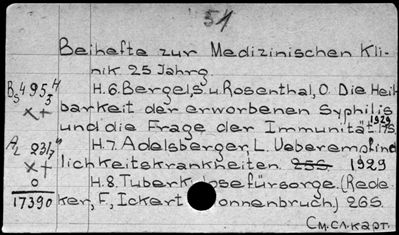 51
Beihefte zur Medizinischen Kli-
nik. 25 Jahrg.
H.6. Bergel, S. u. Rosenthal, O. Die Heil-
barkeit der erworbenen Syphilis
und die Frage der Immunität. 1929 17S.
H.7. Adelsberger, L. Ueberempfind
lichkeitskrankheiten. 25S. 1929
H.8. Tuberk losefürsorge. (Rede-
ker, F., Ickert onnenbruch) 26S.
См.сл.карт.
17390